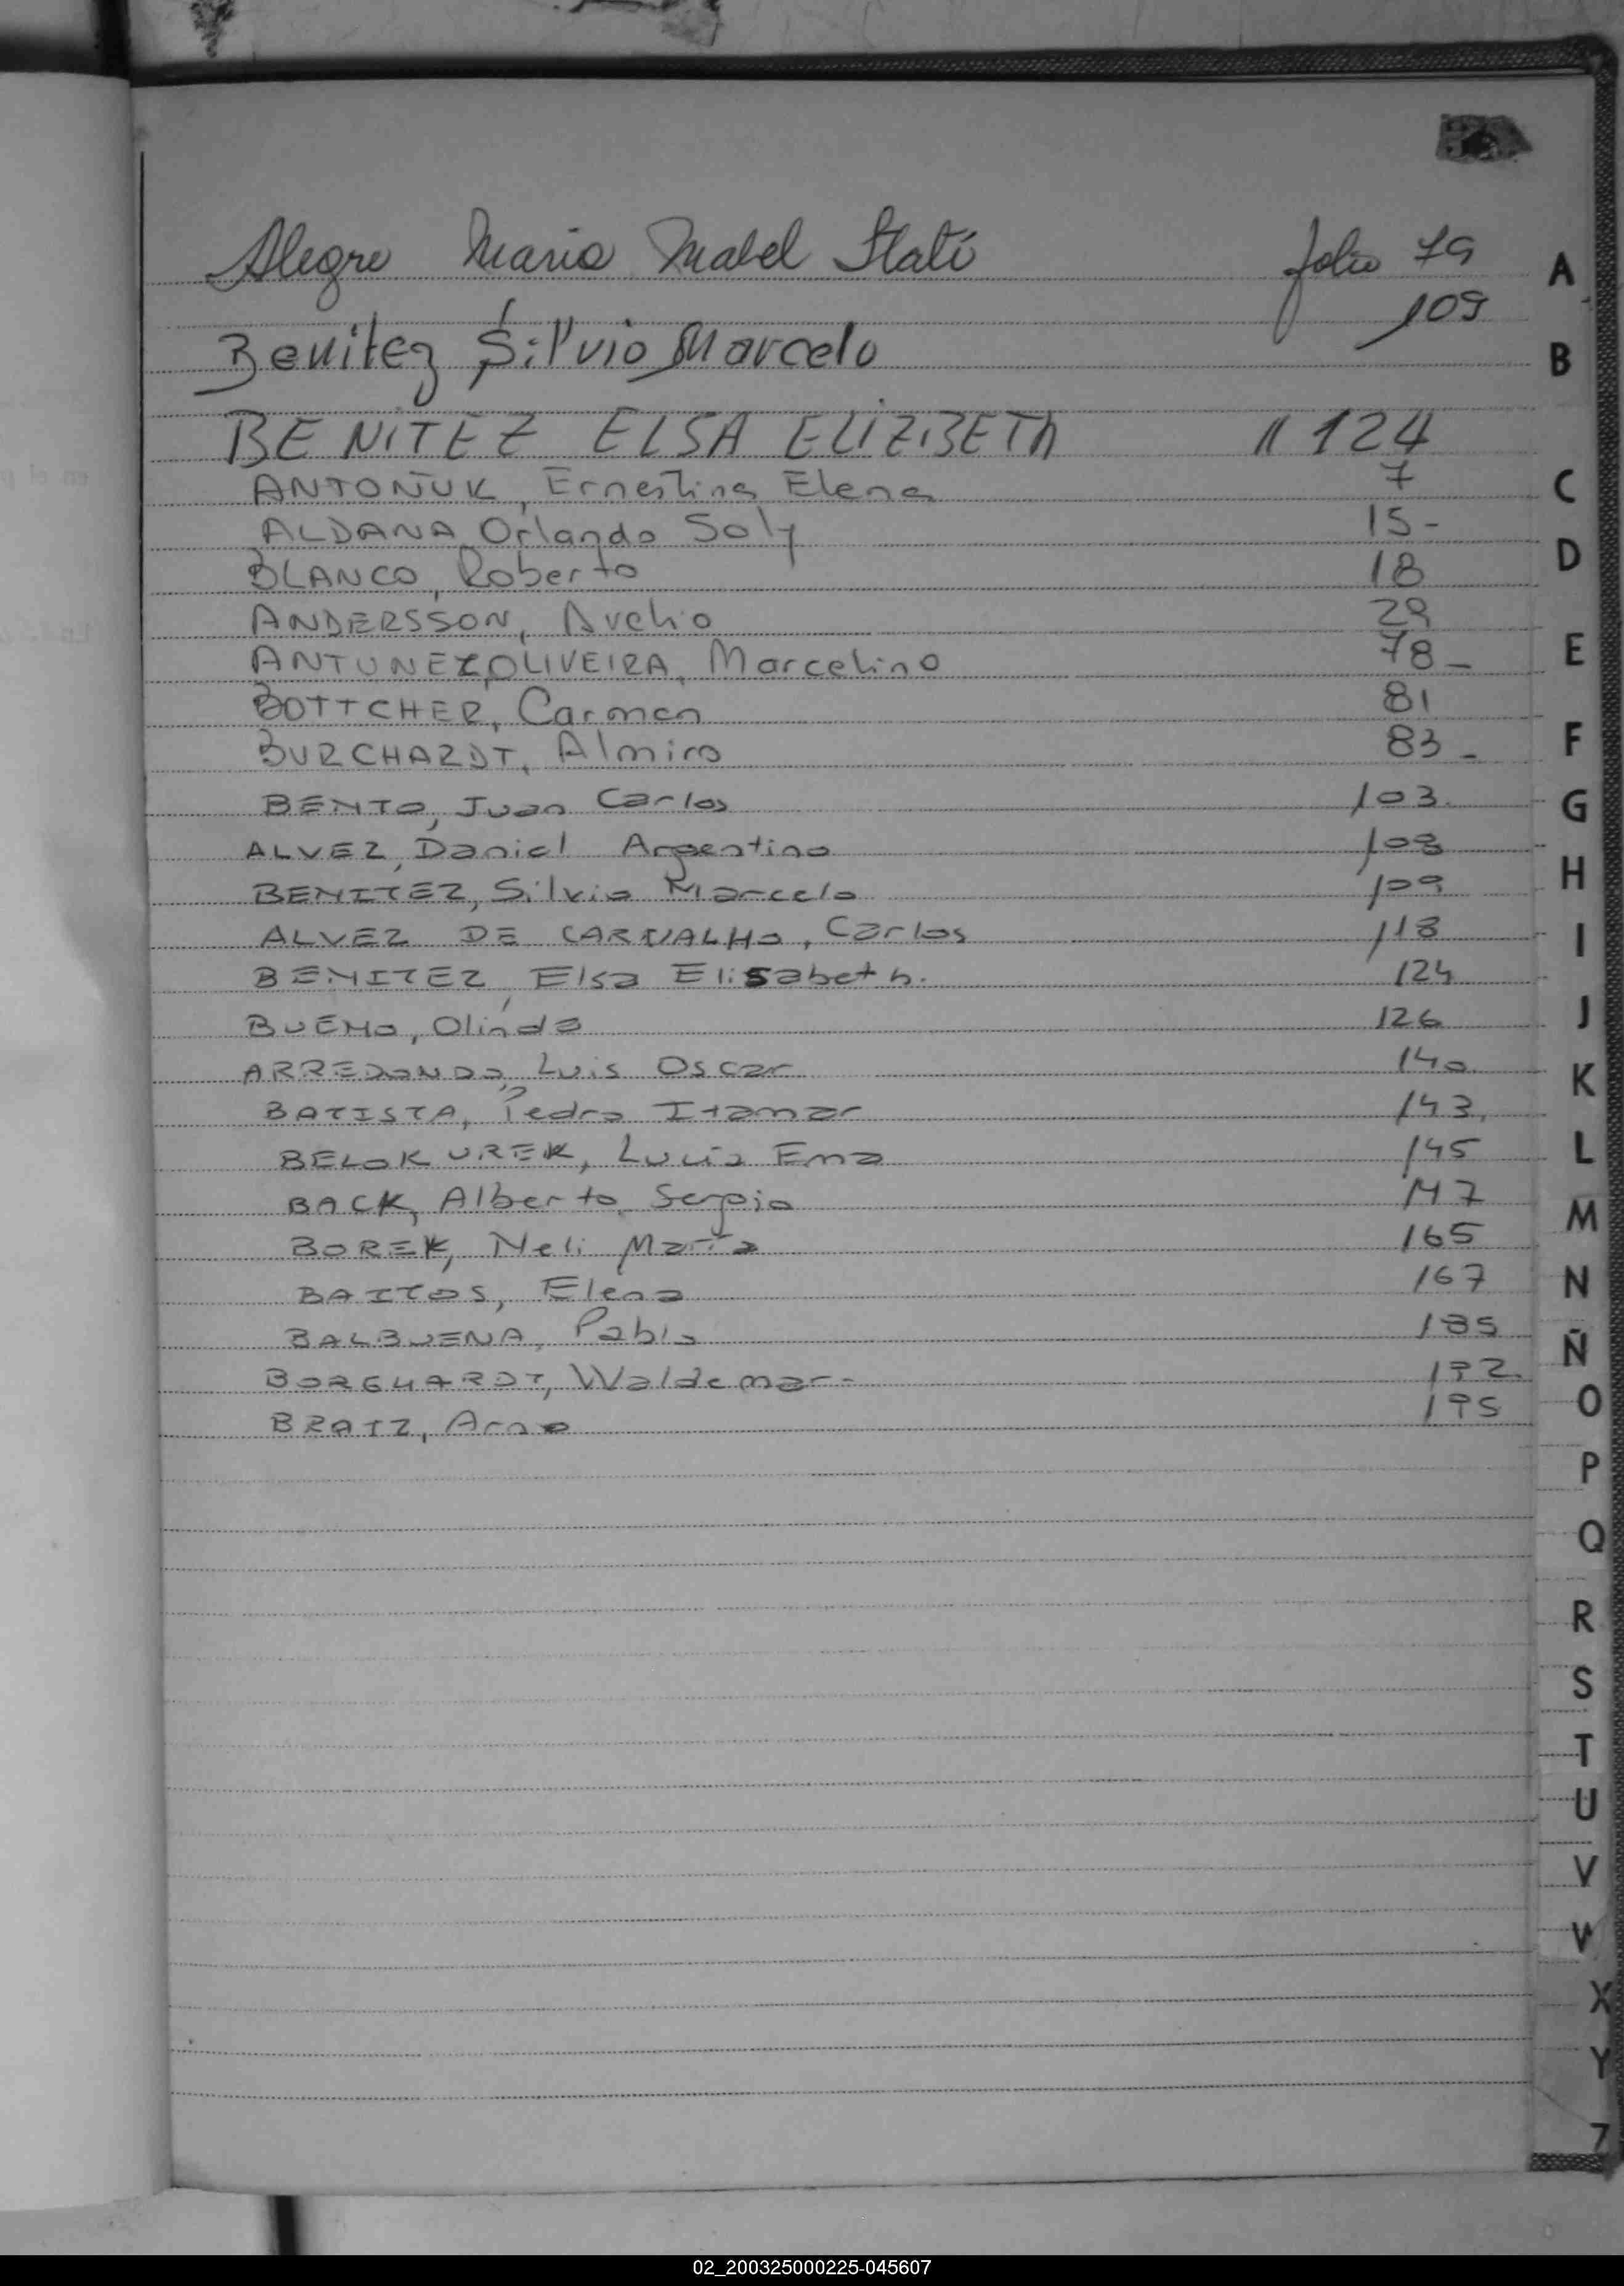 Alegre Maria Mabel Itatí folio 79
Benitez Silvio Marcelo 109
BENITEZ ELSA ELIZIBETH " 124
ANTOÑUK, Ernestina Elena 7
ALDANA, Orlando Soly 15-
BLANCO, Roberto 18
ANDERSSON, Avelio 29
ANTUNEZ OLIVEIRA, Marcelino 78-
BOTTCHER, Carmen 81
BURCHARDT, Almiro 83-
BENTO, Juan Carlos 103.
ALVEZ, Daniel Argentino 108
BENITEZ, Silvio Marcelo 109
ALVEZ DE CARVALHO, Carlos 118
BENITEZ, Elsa Elisabeth. 124
BUENO, Olinda 126
ARREDONDO, Luis Oscar 140.
BATISTA, Pedro Itamar 143.
BELOKUREK, Lucia Ema 145
BACK, Alberto Sergio 147
BOREK, Neli María 165
BAITOS, Elena 167
BALBUENA, Pablo 185
BORGHARDT, Waldemar- 192.
BRATZ, Arno 195
A
B
C
D
E
F
G
H
I
J
K
L
M
N
Ñ
O
P
Q
R
S
T
U
V
W
X
Y
Z
02_200325000225-045607